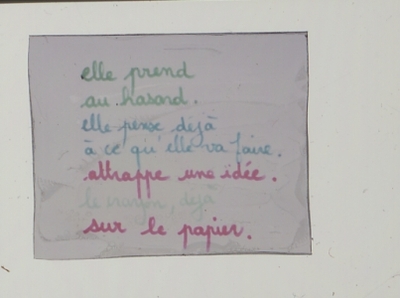 elle prend
au hasard.
elle pense dejà
à ce qu'elle va faire.
attrappe une idée.
le crayon, déjà
sur le papier.